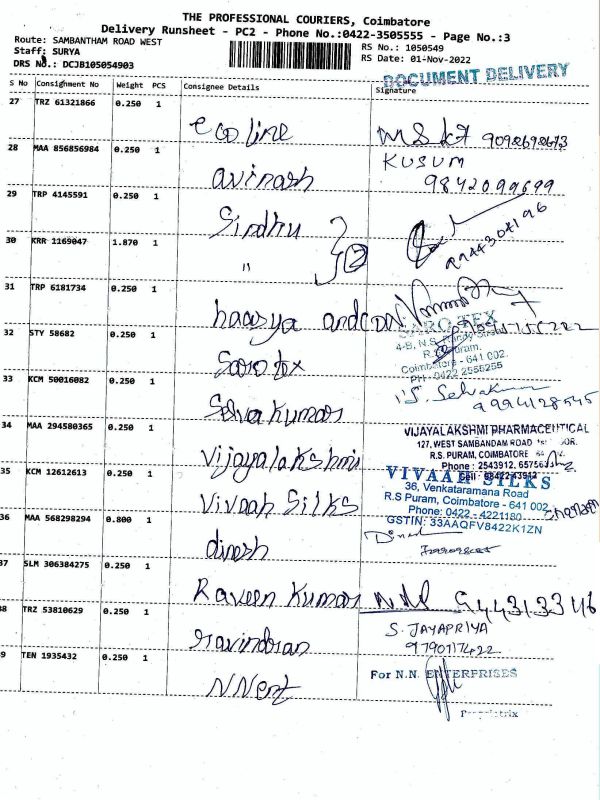 THE PROFESSIONAL COURIERS, Coimbatore
Delivery Runsheet - PC2 - Phone No.:0422-3505555 - Page No.:3
Route: SAMBANTHAM ROAD WEST
RS No.: 1050549
Staff: SURYA
RS Date: 01-Nov-2022
DRS No.: DCJB105054903
DOCUMENT DELIVERY
S No Consignment No Weight PCS Consignee Details Signature
27 TRZ 61321866 0.250 1
ecoline
28 MAA 856856984 0.250 1
KUSUM
avinash 9842099699
29 TRP 4145591 0.250 1
Sindhu
30 KRR 1169047 1.870 1
" 2
31 TRP 6181734 0.250 1
haasya
SARO TEX
32 STY 58682 0.250 1
4-B, N.S.
R.S. Puram,
Coimbatore - 641 002.
Saro tex PH: 0422 2556255
33 KCM 50016082 0.250 1
S. Selvakumar
Selva Kumar
34 MAA 294580365 0.250 1
VIJAYALAKSHMI PHARMACEUTICAL
127, WEST SAMBANDAM ROAD
R.S. PURAM, COIMBATORE
Vijayalakshmi Phone : 2543912,
35 KCM 12612613 0.250 1
VIVAAH SILKS
36, Venkataramana Road
R.S Puram, Coimbatore - 641 002
Vivaah Silks Phone: 0422 - 4221180
GSTIN: 33AAQFV8422K1ZN
36 MAA 568298294 0.800 1
dinesh
37 SLM 306384275 0.250 1
Raveen Kumar
38 TRZ 53810629 0.250 1
S. JAYAPRIYA
ravindran 9790717422
39 TEN 1935432 0.250 1
For N.N. ENTERPRISES
NNent
Proprietrix